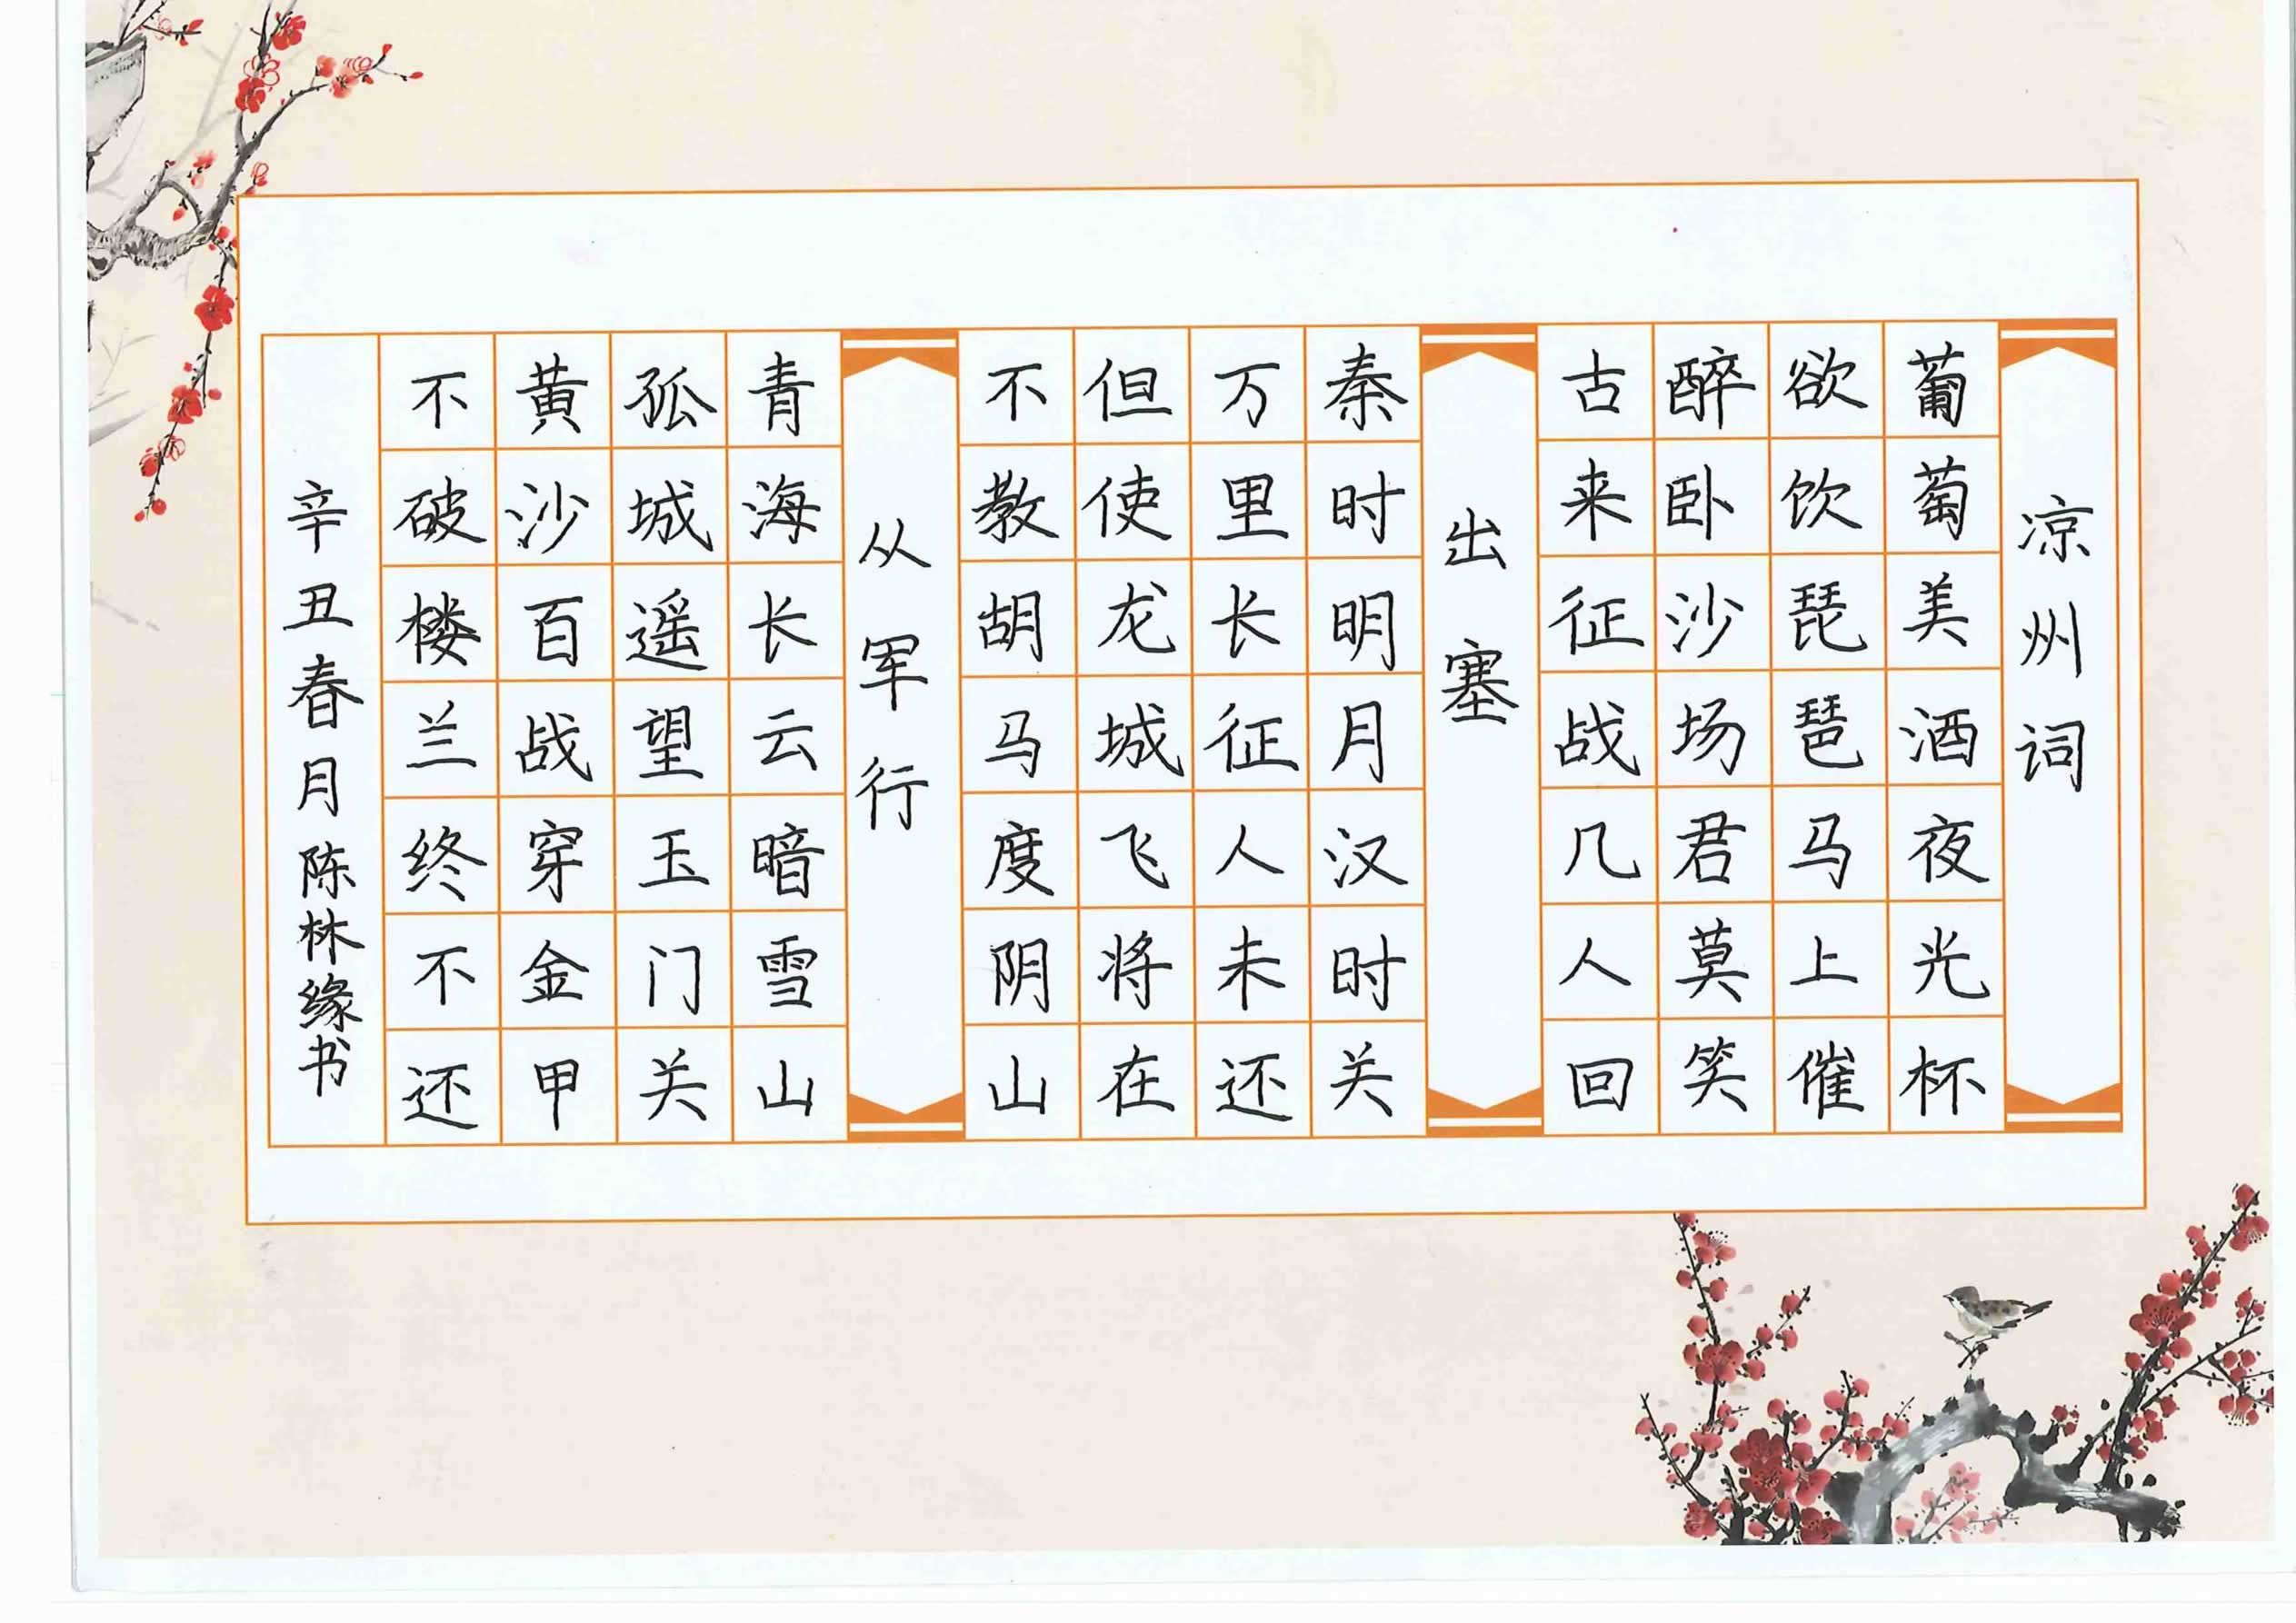 凉州词
葡萄美酒夜光杯
欲饮琵琶马上催
醉卧沙场君莫笑
古来征战几人回
出塞
秦时明月汉时关
万里长征人未还
但使龙城飞将在
不教胡马度阴山
从军行
青海长云暗雪山
孤城遥望玉门关
黄沙百战穿金甲
不破楼兰终不还
辛丑春月陈林缘书